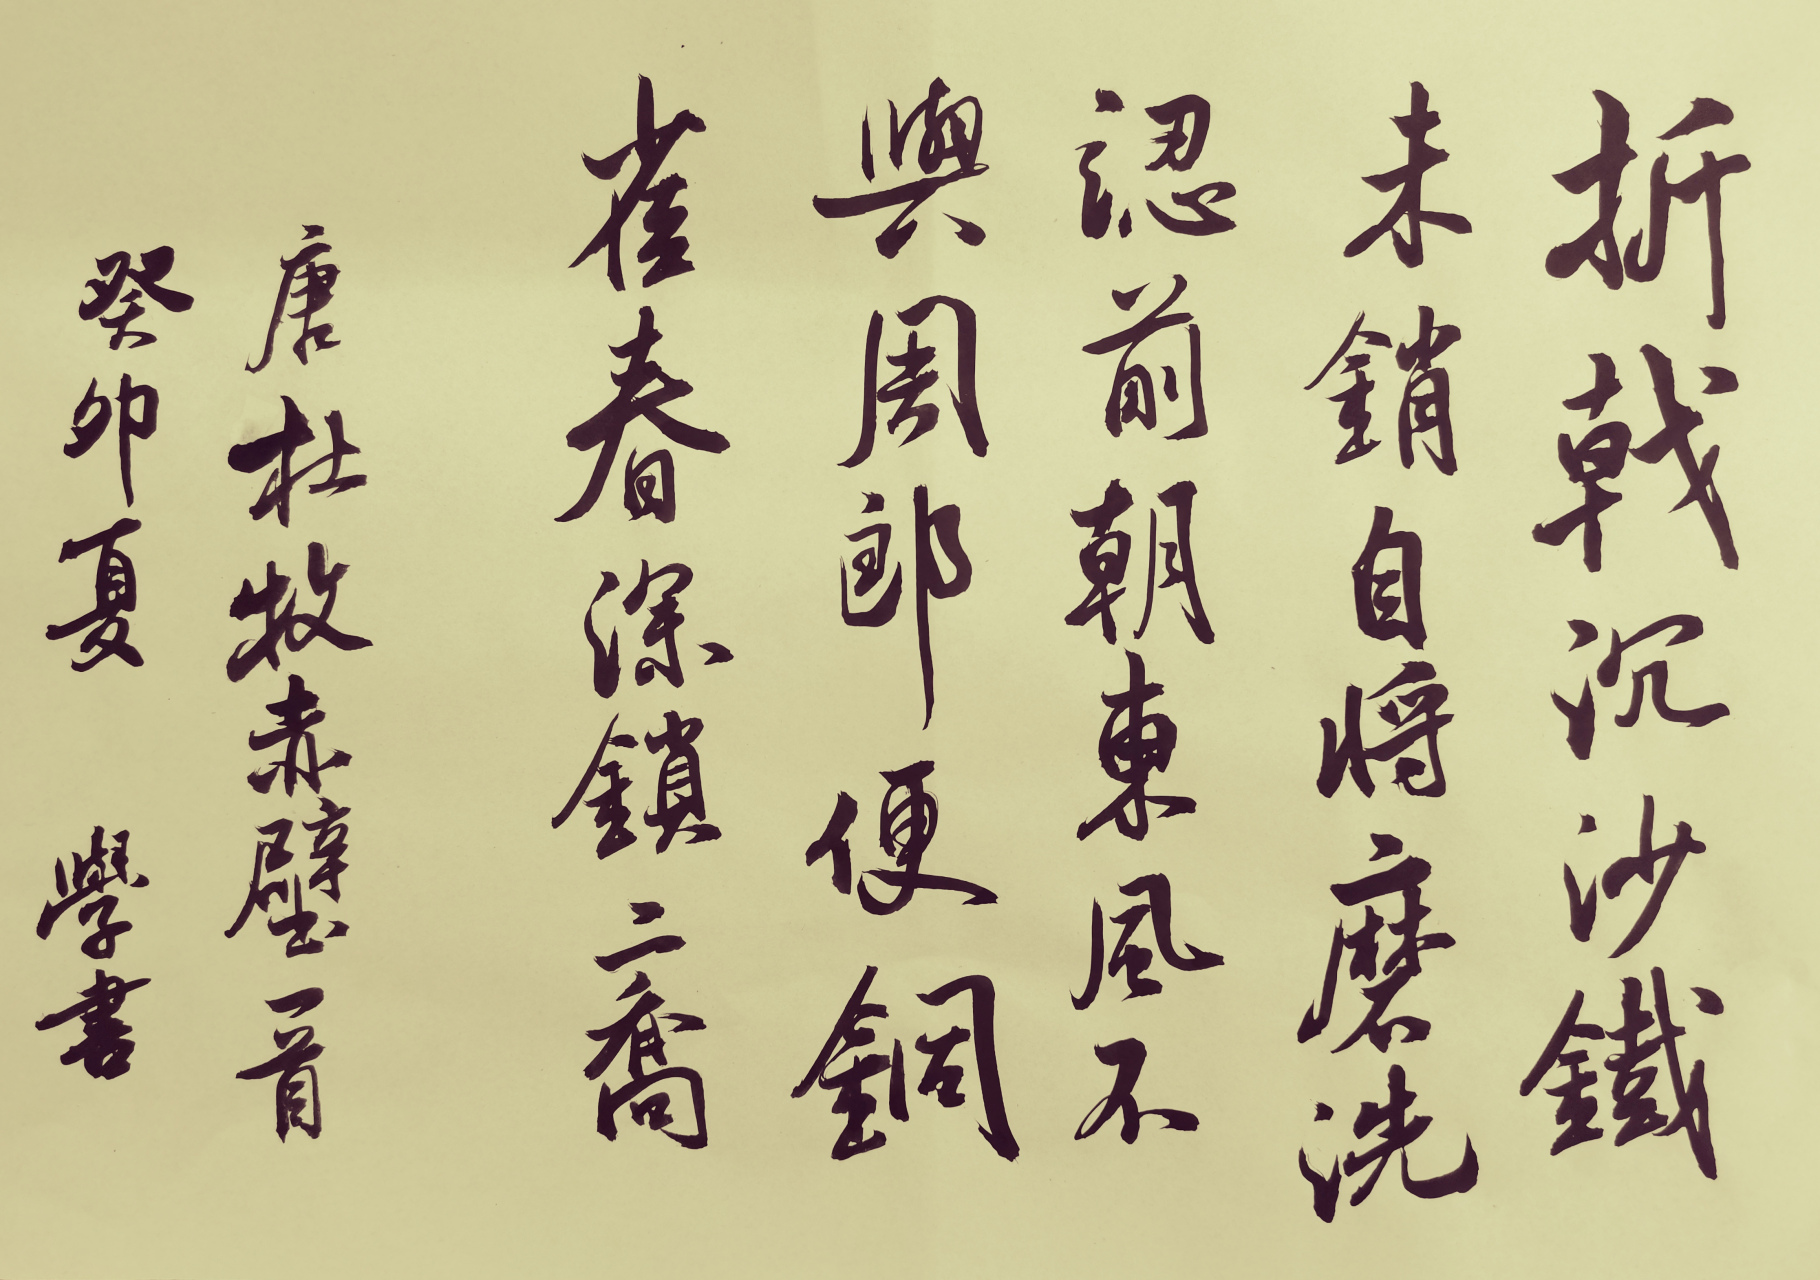 折戟沉沙鐵
未銷自將磨洗
認前朝東風不
與周郎便銅
雀春深鎖二喬
唐杜牧赤壁一首
癸卯夏 學書